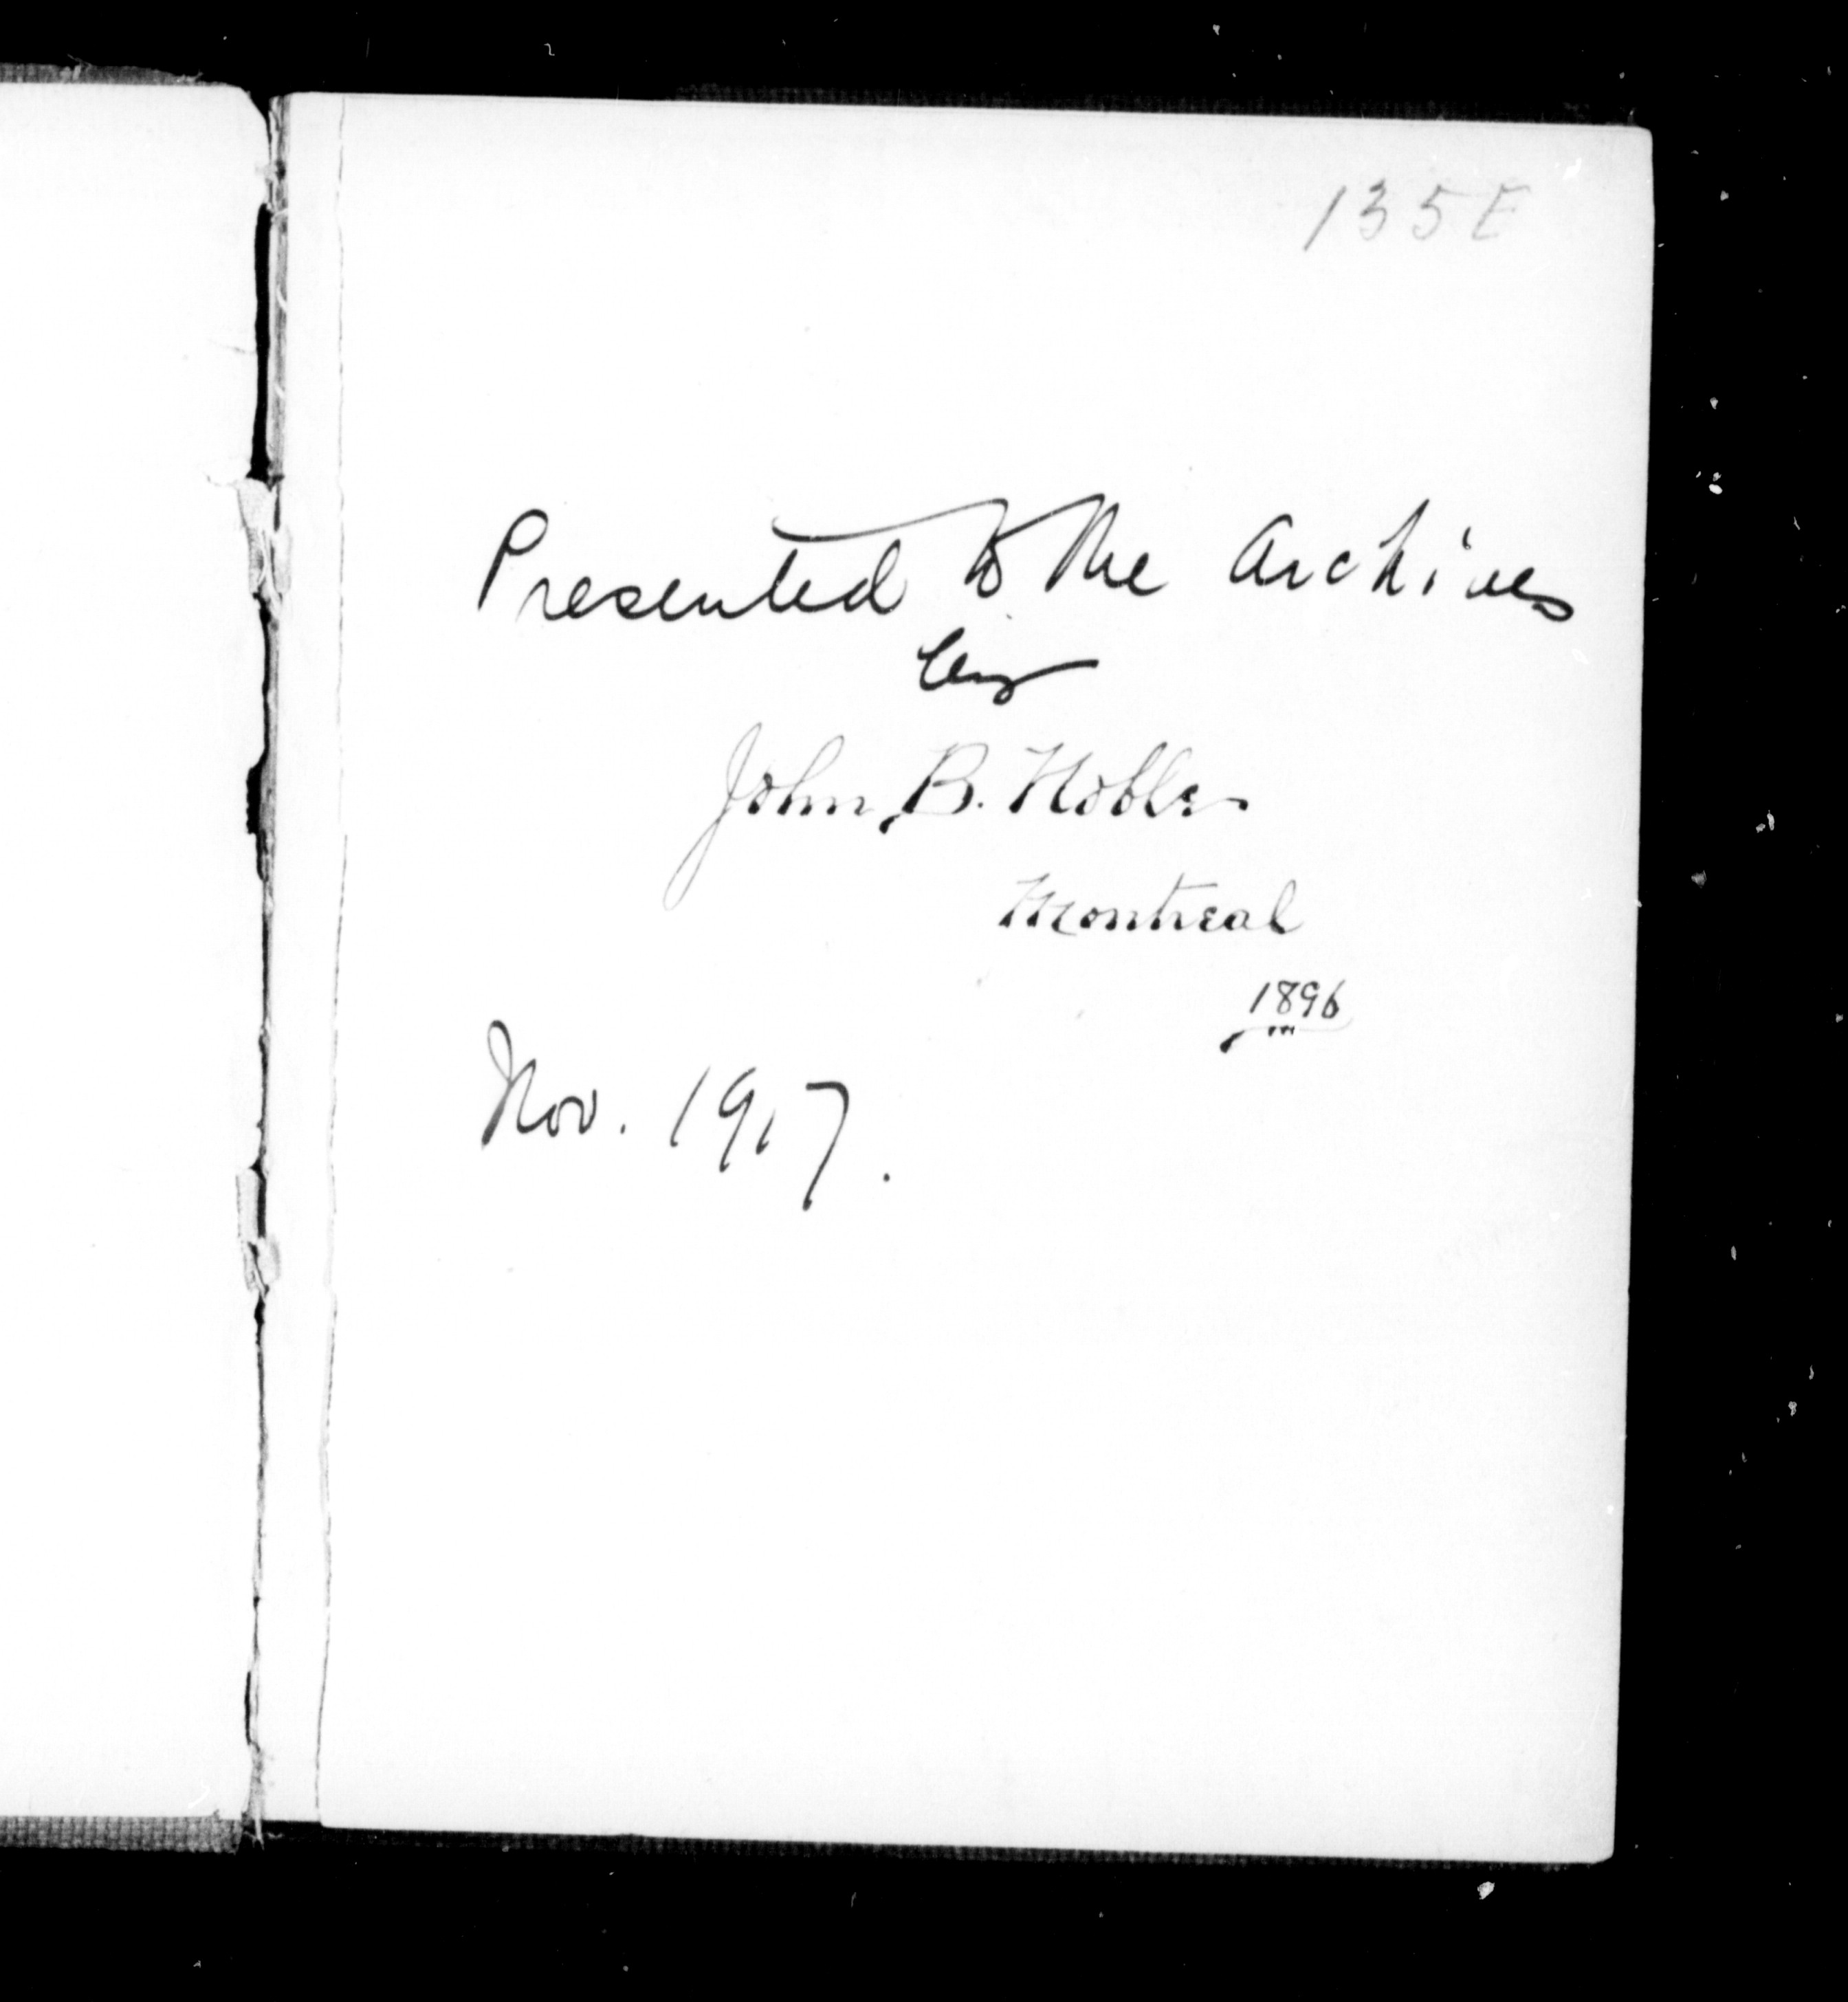 135E
Presented to the Archives
by
John B. Noble
Montreal
1896
Nov. 1917.